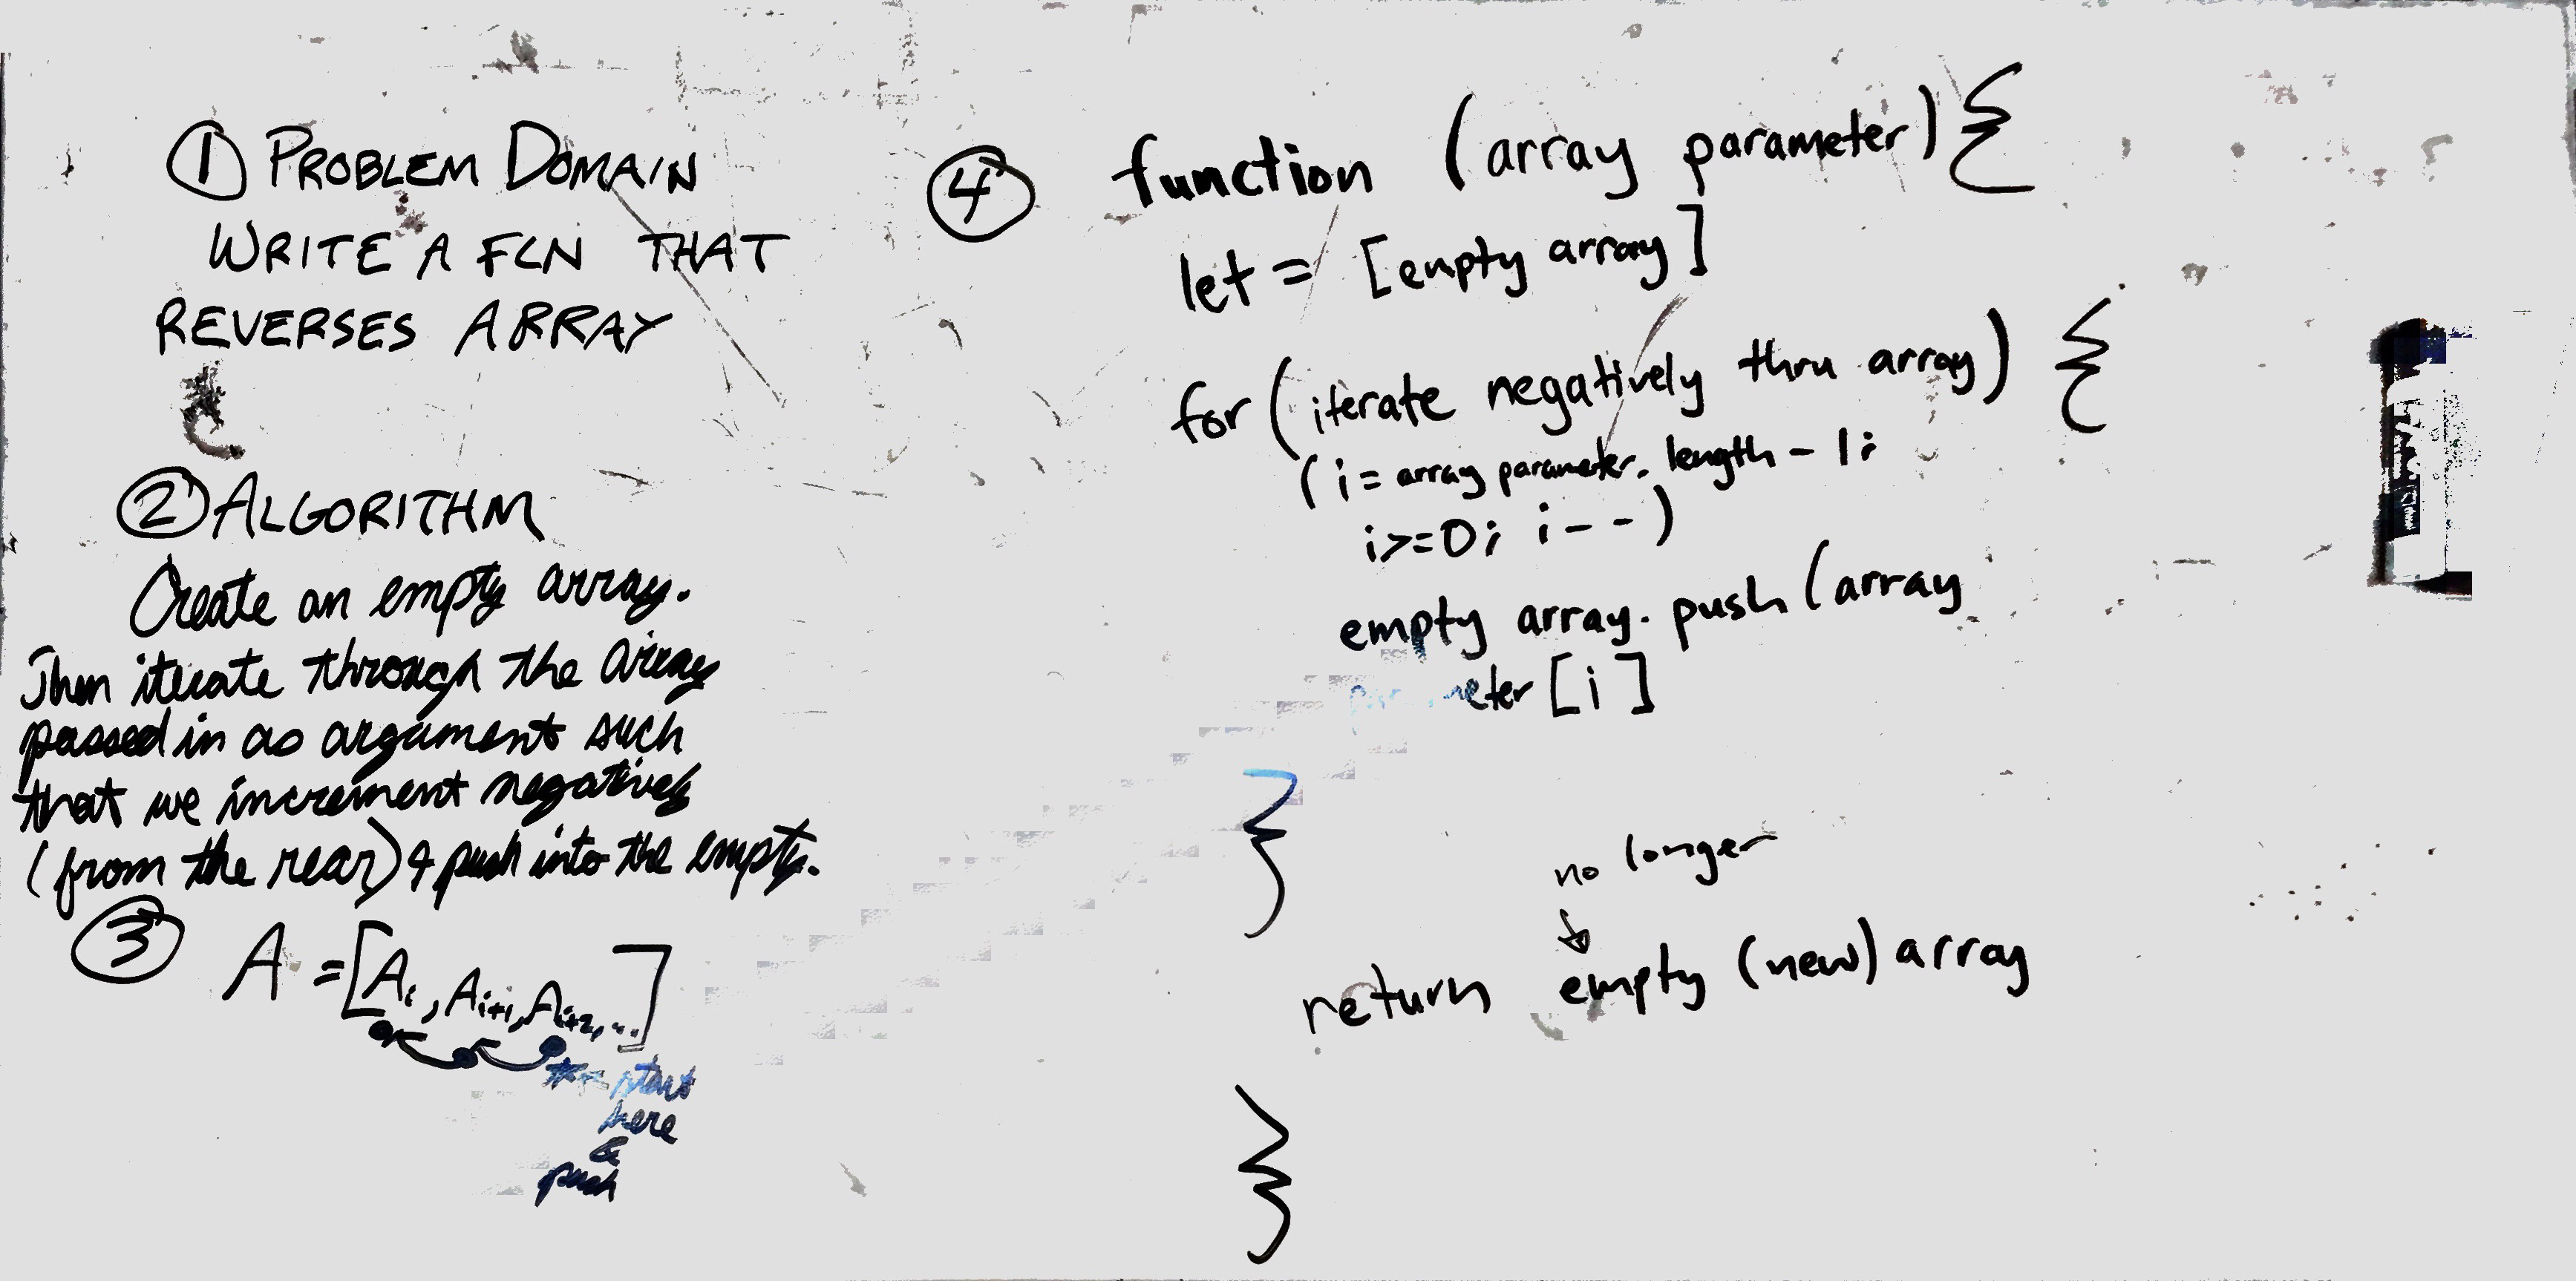 ① PROBLEM DOMAIN
WRITE A FCN THAT
REVERSES ARRAY
② ALGORITHM
Create an empty array.
Then iterate through the array
passed in as argument such
that we increment negatively
(from the rear) & push into the empty.
③ A = [Ai, Ai+1, Ai+2, ...]
start
here
&
push
④ function (array parameter) {
let = [empty array]
for (iterate negatively thru array) {
(i = array parameter. length - 1;
i>=0; i--)
empty array. push (array
parameter [i]
}
no longer
↓
return empty (new) array
}